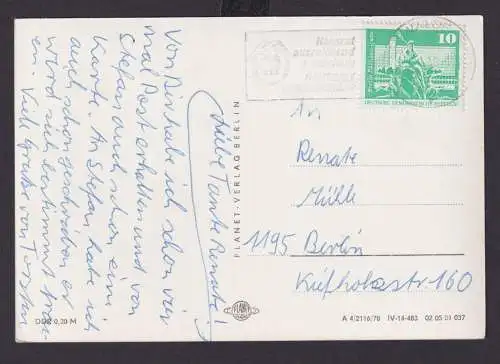 Liebe Tante Renate!
Von Birk habe ich schon vier
mal Post erhalten und von
Stefan auch schon eine
Karte. An Stefan habe ich
auch schon geschrieben er
wird sich bestimmt freu-
en. Viele Grüße von Torsten
DDR 0,20 M
PLANET-VERLAG BERLIN
PLANET
10
DEUTSCHE DEMOKRATISCHE REPUBLIK
An
Renate
Mühle
1195 Berlin
Kiefholzstraße 160
A 4/2116/78 IV-14-483 02 05 01 037